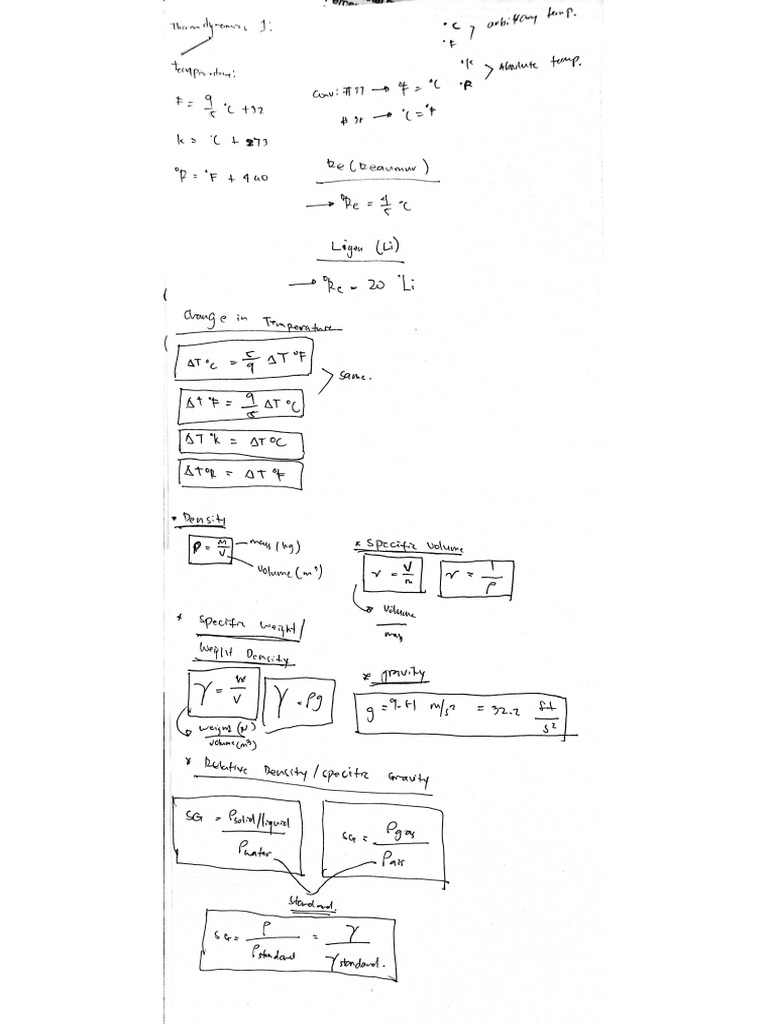 Thermodynamics 1:
°C
°F
arbitrary temp.
°K
°R
Absolute temp.
temperature:
F = 9/5 °C + 32
K = °C + 273
°R = °F + 460
Conv: #37 → °F = °C
#38 → °C = °F
Re (Reaumur)
→ °Re = 4/5 °C
Ligen (Li)
→ °Re = 20 °Li
Change in Temperature
ΔT °C = 5/9 ΔT °F
same.
ΔT °F = 9/5 ΔT °C
ΔT °K = ΔT °C
ΔT °R = ΔT °F
* Density
ρ = m/V
mass (kg)
volume (m³)
* Specific Volume
v = V/m
v = 1/ρ
volume
mass
* Specific Weight/
Weight Density
γ = W/V
γ = ρg
weight (N)
volume (m³)
* gravity
g = 9.81 m/s² = 32.2 ft/s²
* Relative Density / Specific Gravity
SG = ρsolid/liquid / ρwater
SG = ρgas / ρair
Standard
SG = ρ/ρstandard = γ/γstandard.